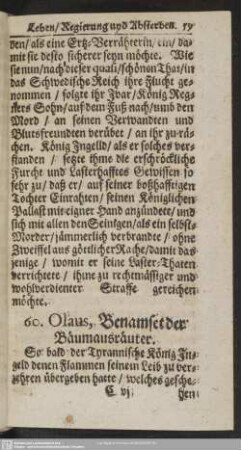 Leben/ Regierung und Absterben. 59
den/ als eine Ertz-Verrähterin/ ein/ da-
mit sie desto sicherer seyn möchte. Wie
sie nun/ nach dieser quali/ schönen That/ in
das Schwedische Reich ihre Flucht ge-
nommen/ folgte ihr Jvar/ König Reg-
ners Sohn/ auf dem Fuß nach/ umb den
Mord/ an seinen Verwandten und
Blutsfreundten verübet/ an ihr zu rä-
chen. König Jngelld/ als er solches ver-
standen/ setzte ihme die erschröckliche
Furcht und Lasterhafftes Gewissen so
sehr zu/ daß er/ auf seiner boßhafftigen
Tochter Einrahten/ seinen Königlichen
Pallast mit eigner Hand angündete/ und
sich mit allen den Seinigen/ als ein selbst-
Morder/ jämmerlich verbrandte/ ohne
Zweiffel aus göttlicher Rache/ damit das
jenige/ womit er seine Laster-Thaten
verrichtete/ ihme zu rechtmässiger und
wohlverdienter Straffe gereichen
möchte.
60. Olaus, Benamset der
Bäumausräuter.
So bald der Tyrannische König Jn-
geld denen Flammen seinem Leib zu ver-
zehren übergeben hatte/ welches gesche-
C vj hen